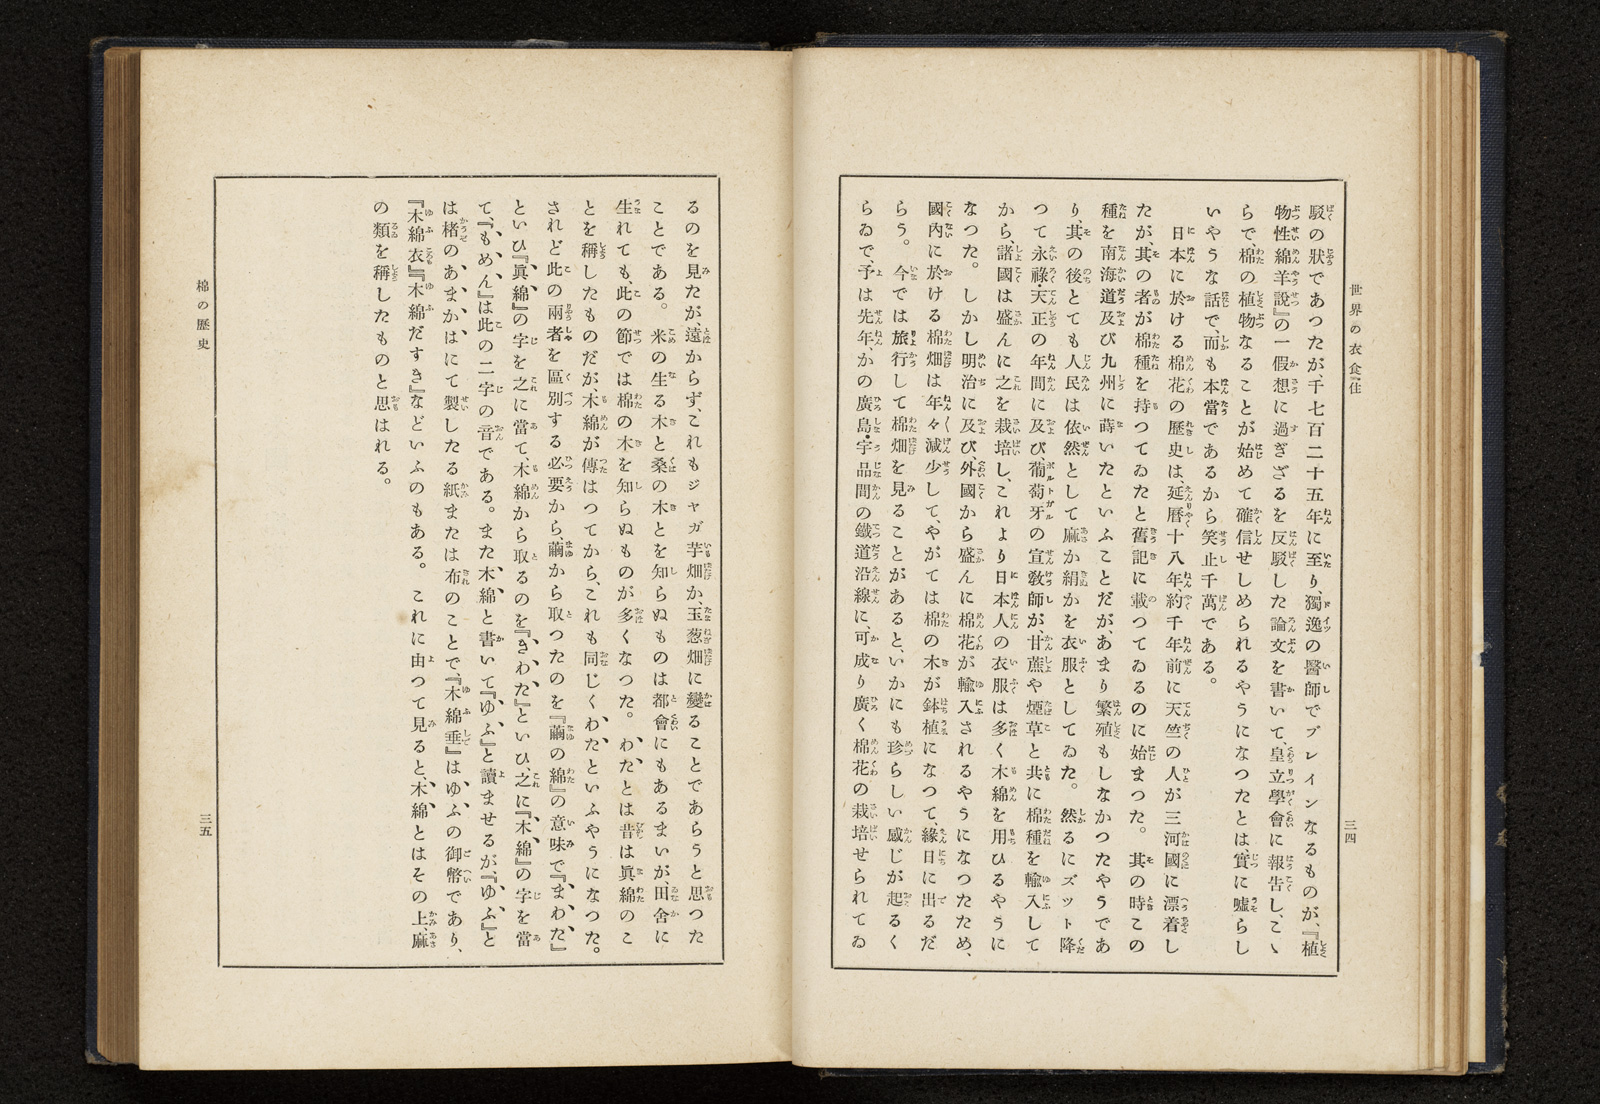 世界の衣食住
三四
駁の狀であつたが千七百二十五年に至り、獨逸の醫師でブレインなるものが、『植
物性綿羊說』の一假想に過ぎざるを反駁した論文を書いて、皇立學會に報告し、こゝ
らで、棉の植物なることが始めて確信せしめられるやうになつたとは、實に噓らし
いやうな話で、而も本當であるから笑止千萬である。
日本に於ける棉花の歷史は、延曆十八年、約千年前に天竺の人が三河國に漂着し
たが、其の者が棉種を持つてゐたと舊記に載つてゐるのに始まつた。其の時この
種を南海道及び九州に蒔いたといふことだが、あまり繁殖もしなかつたやうであ
り、其の後とても人民は依然として麻か絹かを衣服としてゐた。然るにズット降
つて永祿・天正の年間に及び、葡萄牙の宣敎師が、甘蔗や煙草と共に棉種を輸入して
から、諸國は盛んに之を栽培し、これより日本人の衣服は多く木綿を用ひるやうに
なつた。しかし明治に及び、外國から盛んに棉花が輸入されるやうになつたため、
國內に於ける棉畑は年々減少して、やがては棉の木が鉢植になつて、緣日に出るだ
らう。今では旅行して棉畑を見ることがあると、いかにも珍らしい感じが起るく
らゐで、予は先年、かの廣島・宇品間の鐵道沿線に、可成り廣く棉花の栽培せられてゐ
るのを見たが遠からず、これもジャガ芋畑か玉葱畑に變ることであらうと思つた
ことである。米の生る木と桑の木とを知らぬものは都會にもあるまいが、田舍に
生れても、此の節では棉の木を知らぬものが多くなつた。わたとは昔は眞綿のこ
とを稱したものだが、木綿が傳はつてから、これも同じくわたといふやうになつた。
されど此の兩者を區別する必要から、繭から取つたのを『繭の綿』の意味で『まわた』
といひ『眞綿』の字を之に當て、木綿から取るのを『きわた』といひ、之に『木綿』の字を當
て、『もめん』は此の二字の音である。また木綿と書いて『ゆふ』と讀ませるが、『ゆふ』と
は楮のあまかはにて製したる紙または布のことで、『木綿垂』は、ゆふの御幣であり、
『木綿衣』『木綿だすき』などいふのもある。これに由つて見ると、木綿とはその上、麻
の類を稱したものと思はれる。
棉の歷史
三五